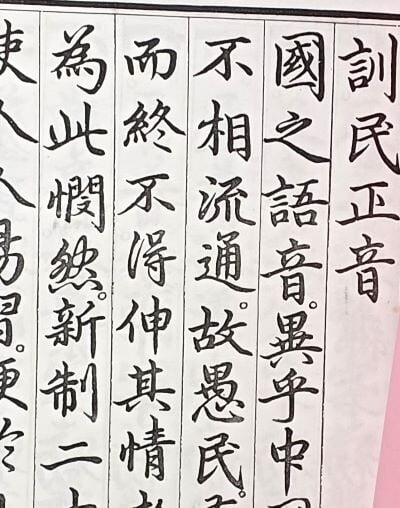 訓民正音
國之語音。異乎中
不相流通。故愚民。
而終不得伸其情
為此憫然。新制二
人人易習。便於